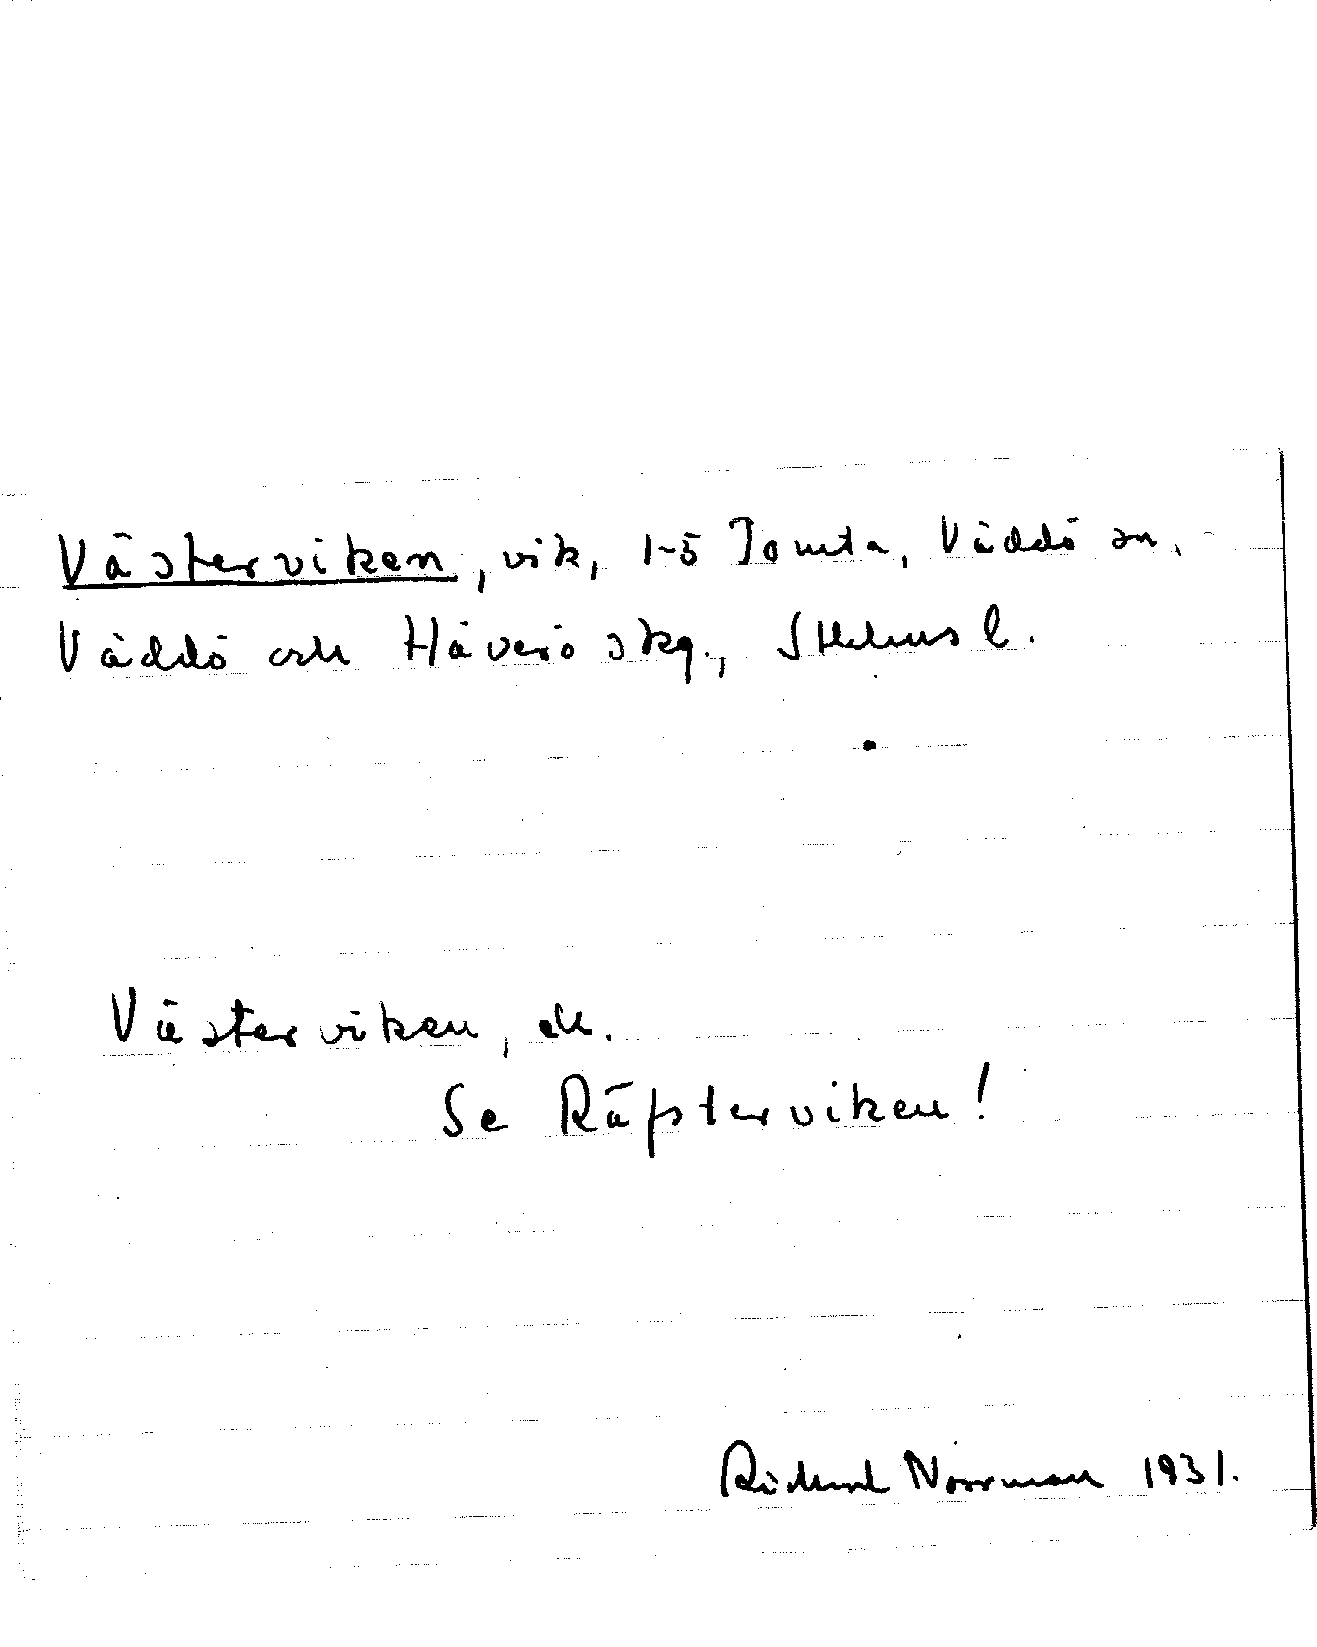 Västerviken, vik, 1-5 Tomta, Väddö sn,
Väddö och Häverö skg., Sthlms l.
Västerviken, ek.
Se Räfsterviken!
Rickard Norrman 1931.